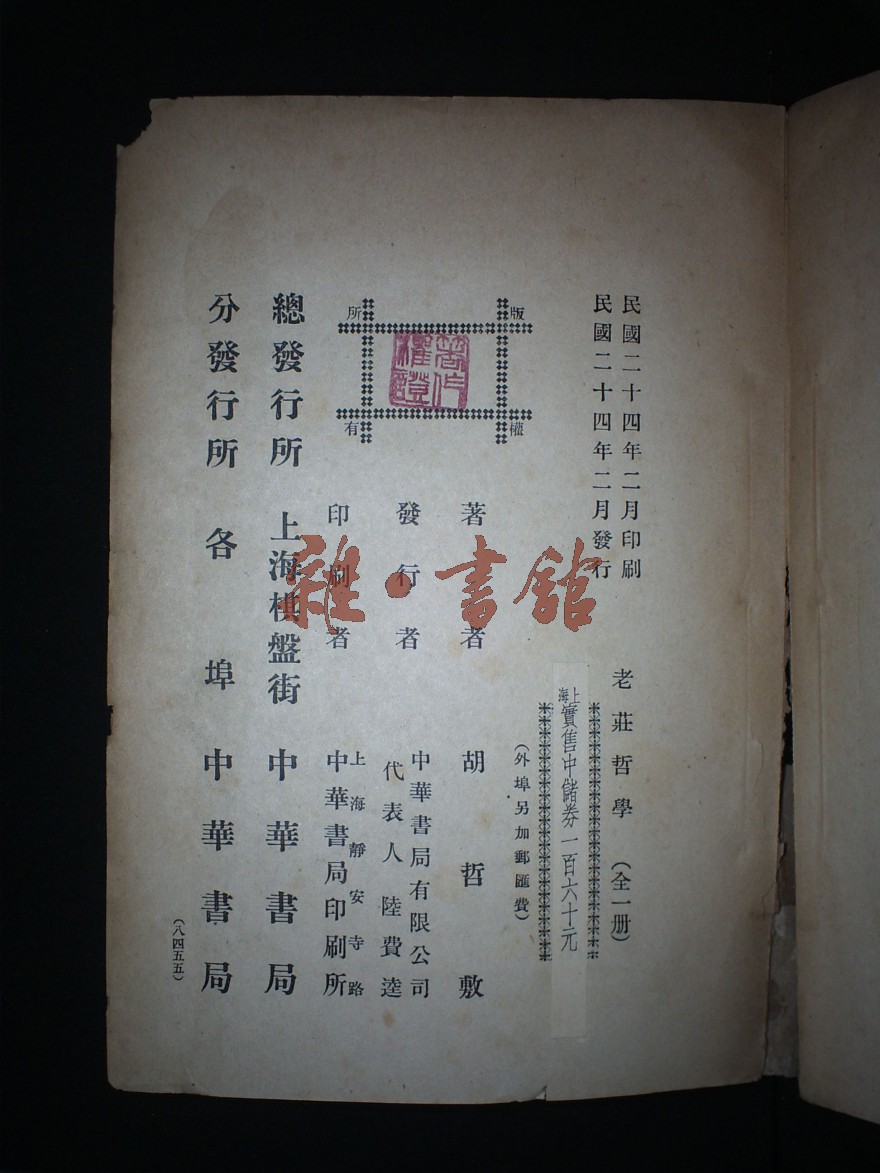 民國二十四年二月印刷
民國二十四年二月發行
老莊哲學（全一册）
上海實售中儲券一百六十元
（外埠另加郵匯費）
版權所有
著作權證
著者 胡哲敷
發行者 中華書局有限公司
代表人陸費逵
印刷者 上海靜安寺路
中華書局印刷所
總發行所 上海棋盤街 中華書局
分發行所 各埠 中華書局
（八四五五）
雜·書館